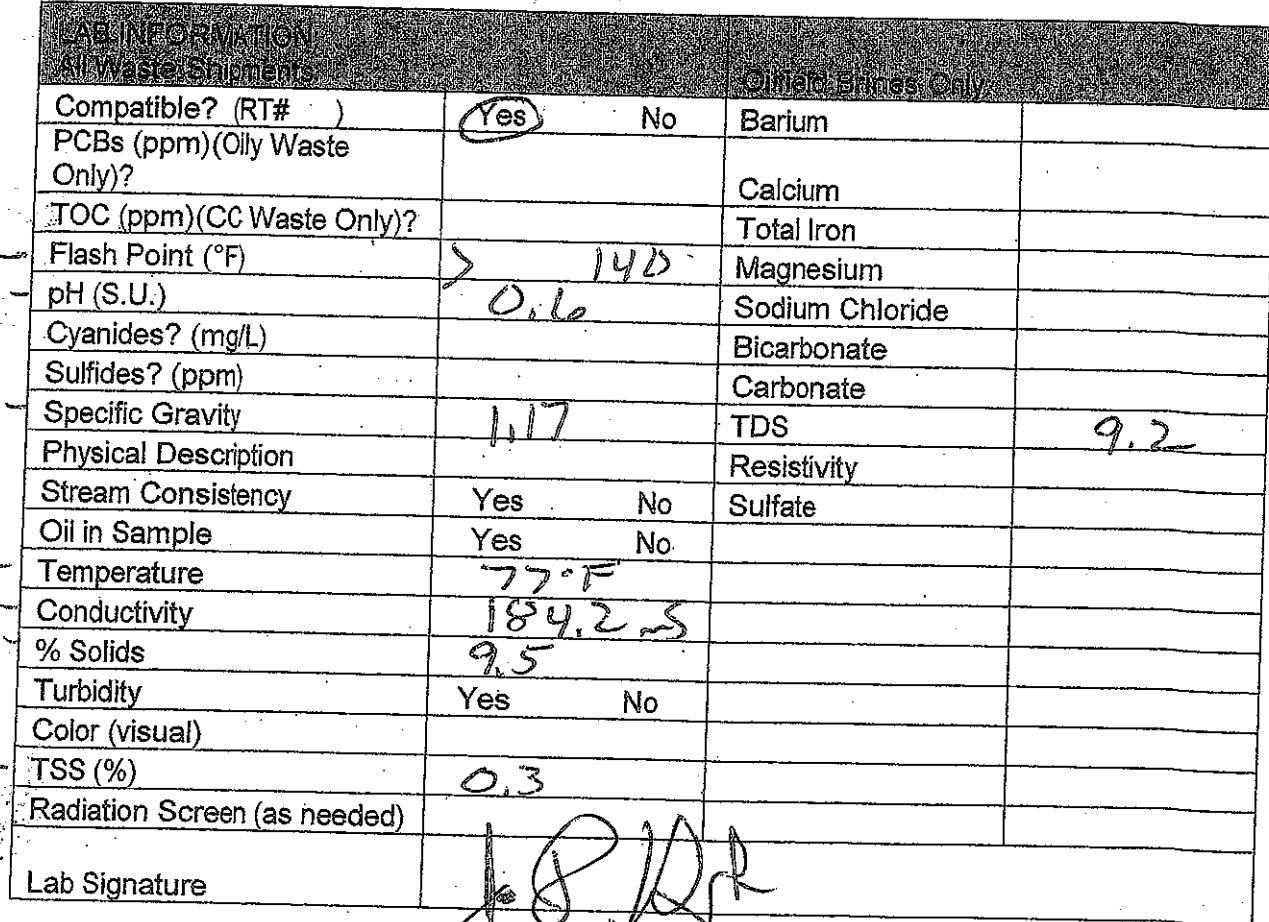 LAB INFORMATION
All Waste Shipments Oilfield Brines Only
Compatible? (RT# ) Yes No Barium
PCBs (ppm)(Oily Waste
Only)? Calcium
TOC (ppm)(CC Waste Only)? Total Iron
Flash Point (°F) > 140 Magnesium
pH (S.U.) 0.6 Sodium Chloride
Cyanides? (mg/L) Bicarbonate
Sulfides? (ppm) Carbonate
Specific Gravity 1.17 TDS 9.2
Physical Description Resistivity
Stream Consistency Yes No Sulfate
Oil in Sample Yes No
Temperature 77°F
Conductivity 184.2 mS
% Solids 9.5
Turbidity Yes No
Color (visual)
TSS (%) 0.3
Radiation Screen (as needed)
Lab Signature